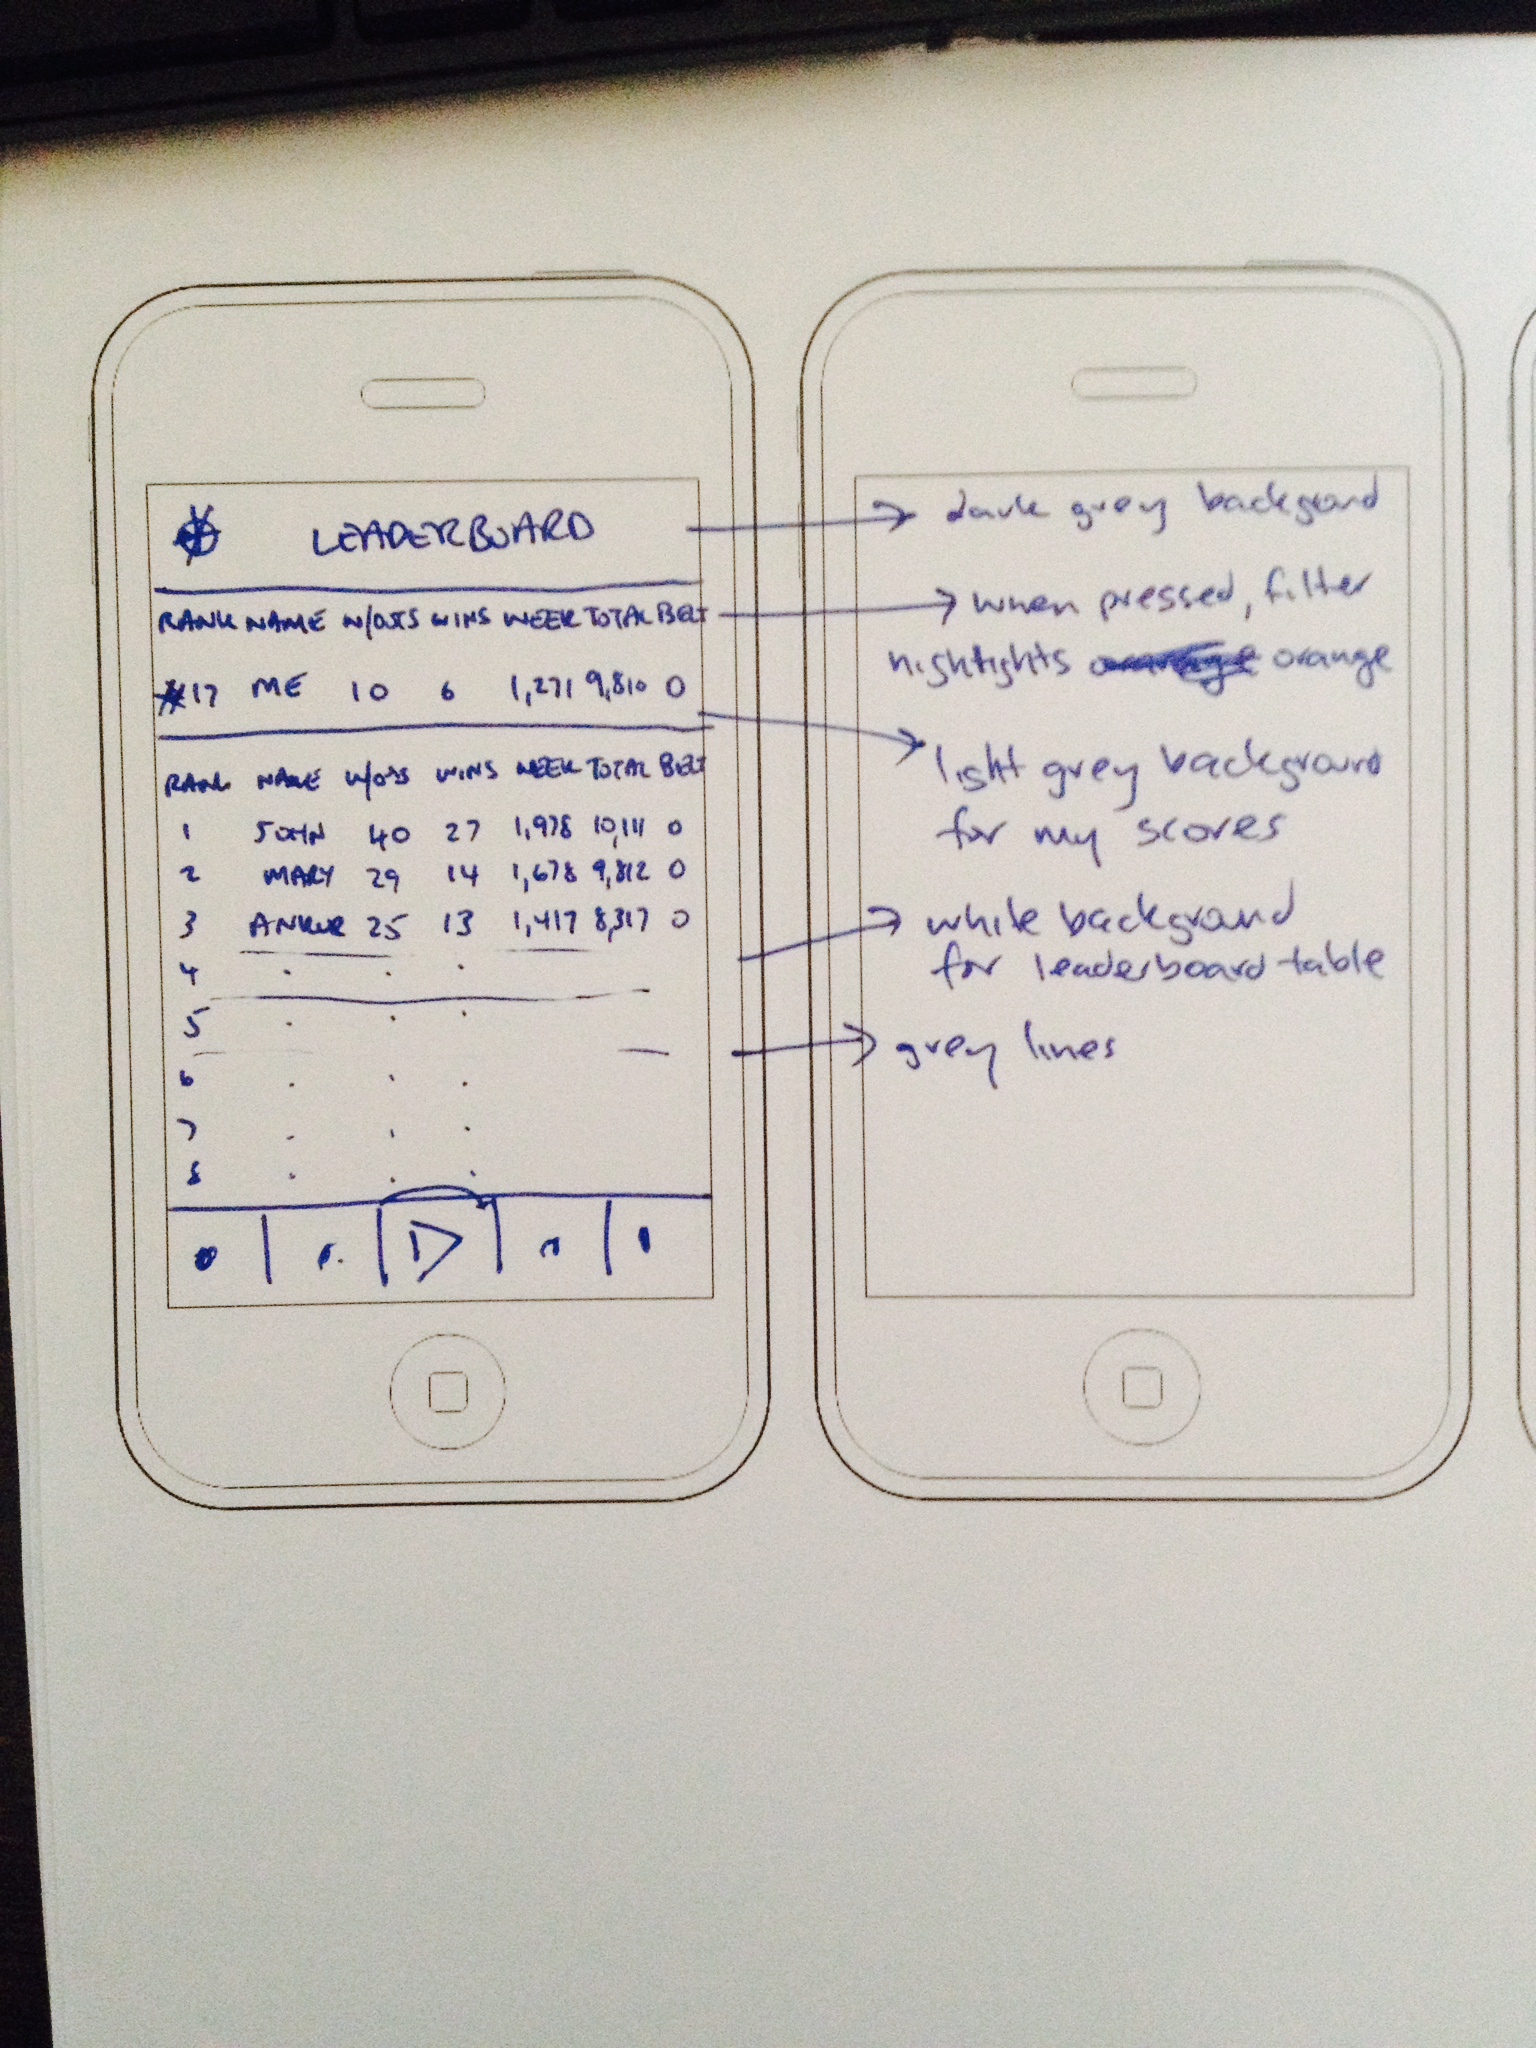 LEADERBOARD
RANK NAME W/OUTS WINS WEEK TOTAL BELT
#17 ME 10 6 1,271 9,810 0
RANK NAME W/OUTS WINS WEEK TOTAL BELT
1 JOHN 40 27 1,978 10,111 0
2 MARY 29 14 1,678 9,812 0
3 ANKUR 25 13 1,417 8,317 0
4
5
6
7
8
dark grey background
when pressed, filter
highlights orange
light grey background
for my scores
white background
for leaderboard table
grey lines